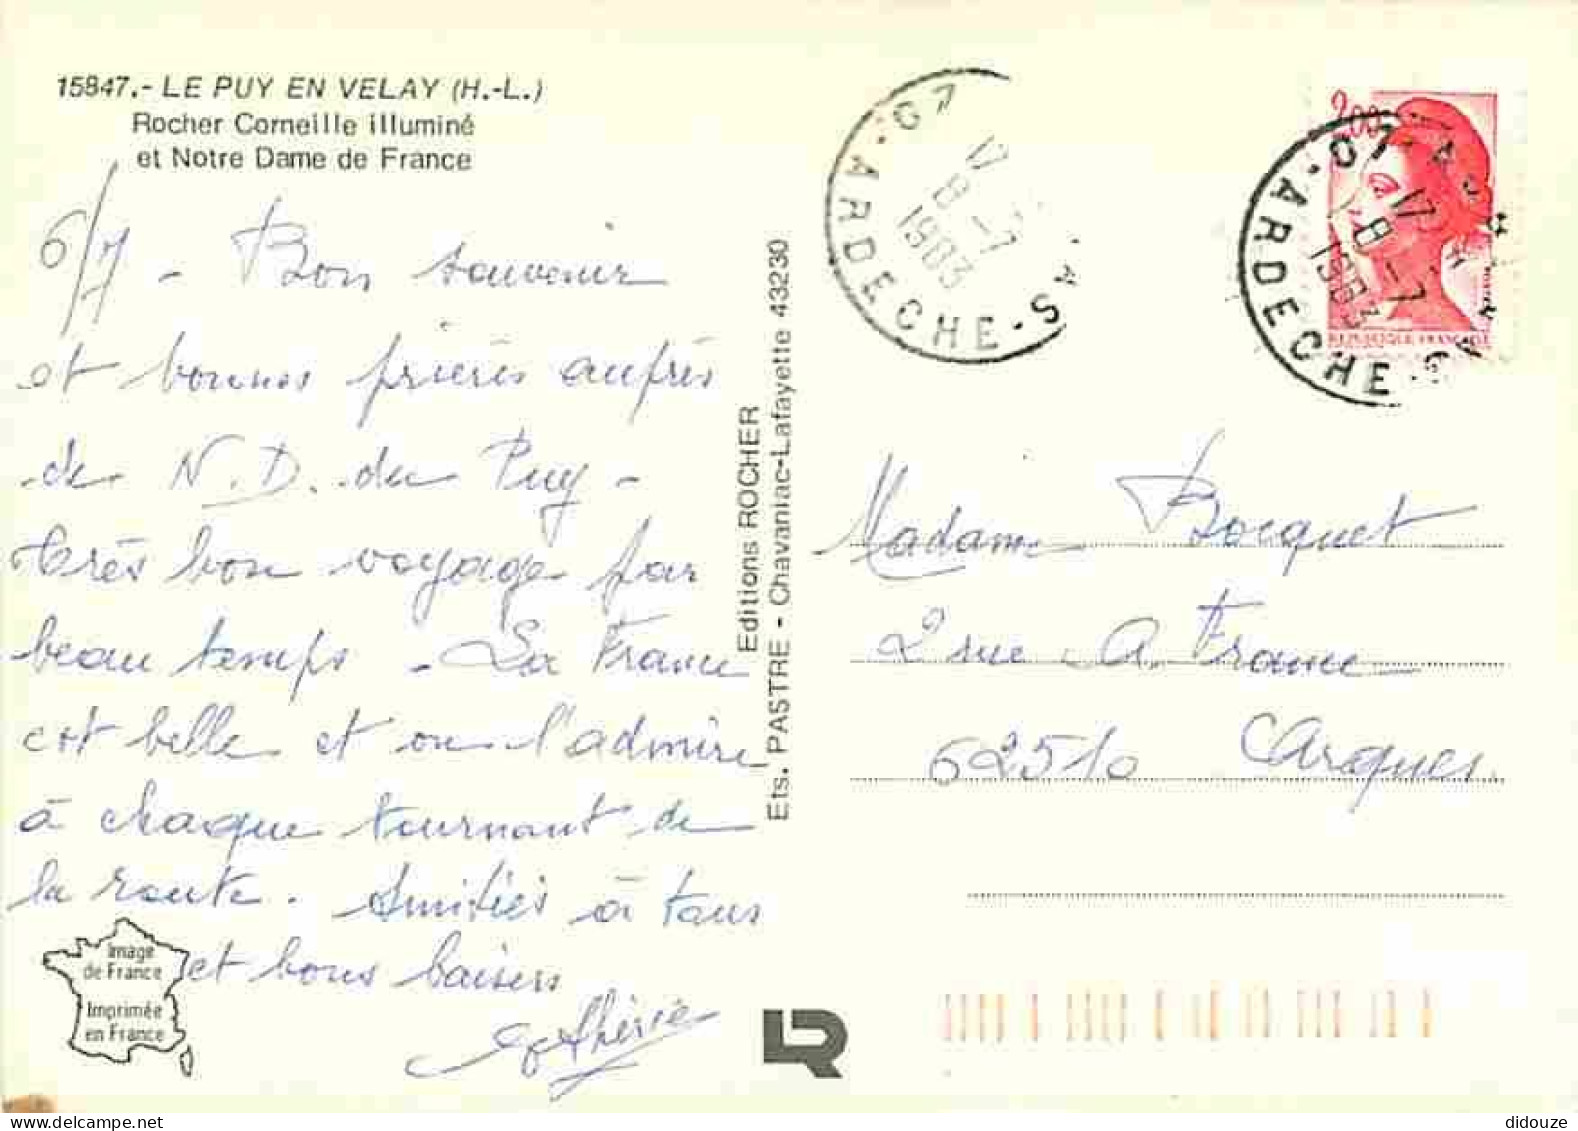 15847.- LE PUY EN VELAY (H.-L.)
Rocher Corneille illuminé
et Notre Dame de France
6/7 - Bon souvenir
et bonnes prières auprès
de N.D. du Puy -
très bon voyage par
beau temps - La France
est belle et on l'admire
à chaque tournant de
la route. Amitiés à tous
et bons baisers
Image
de France
Imprimée
en France
Editions ROCHER
Ets. PASTRE - Chavaniac-Lafayette 43230
07
17 H
8 - 7
1983
ARDECHE
2,00
REPUBLIQUE FRANÇAISE
07
17 H
8 - 7
1983
ARDECHE
Madame Bocquet
2 rue A. France
62510 Arques
LR
didouze